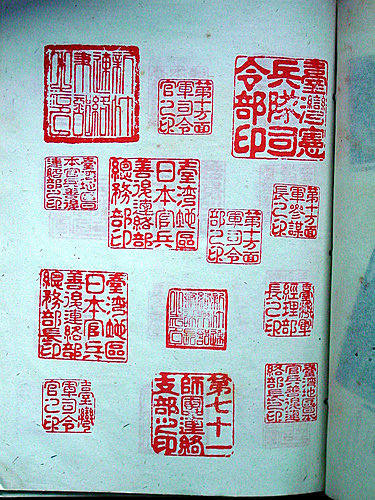 第十方面
軍司令
官之印
臺灣憲
兵隊司
令部印
臺灣地區日
本官兵善後
連絡部之印
臺湾地區
日本官兵
善後連絡部
總務部印
第十方面
軍司令
部之印
第十方面
軍參謀
長之印
臺湾地區
日本官兵
善後連絡部
總務部長印
臺灣軍
經理部
長之印
臺灣
軍司令
官之印
第七十一
師團連絡
支部之印
臺灣地區日本
官兵善後連
絡部長之印